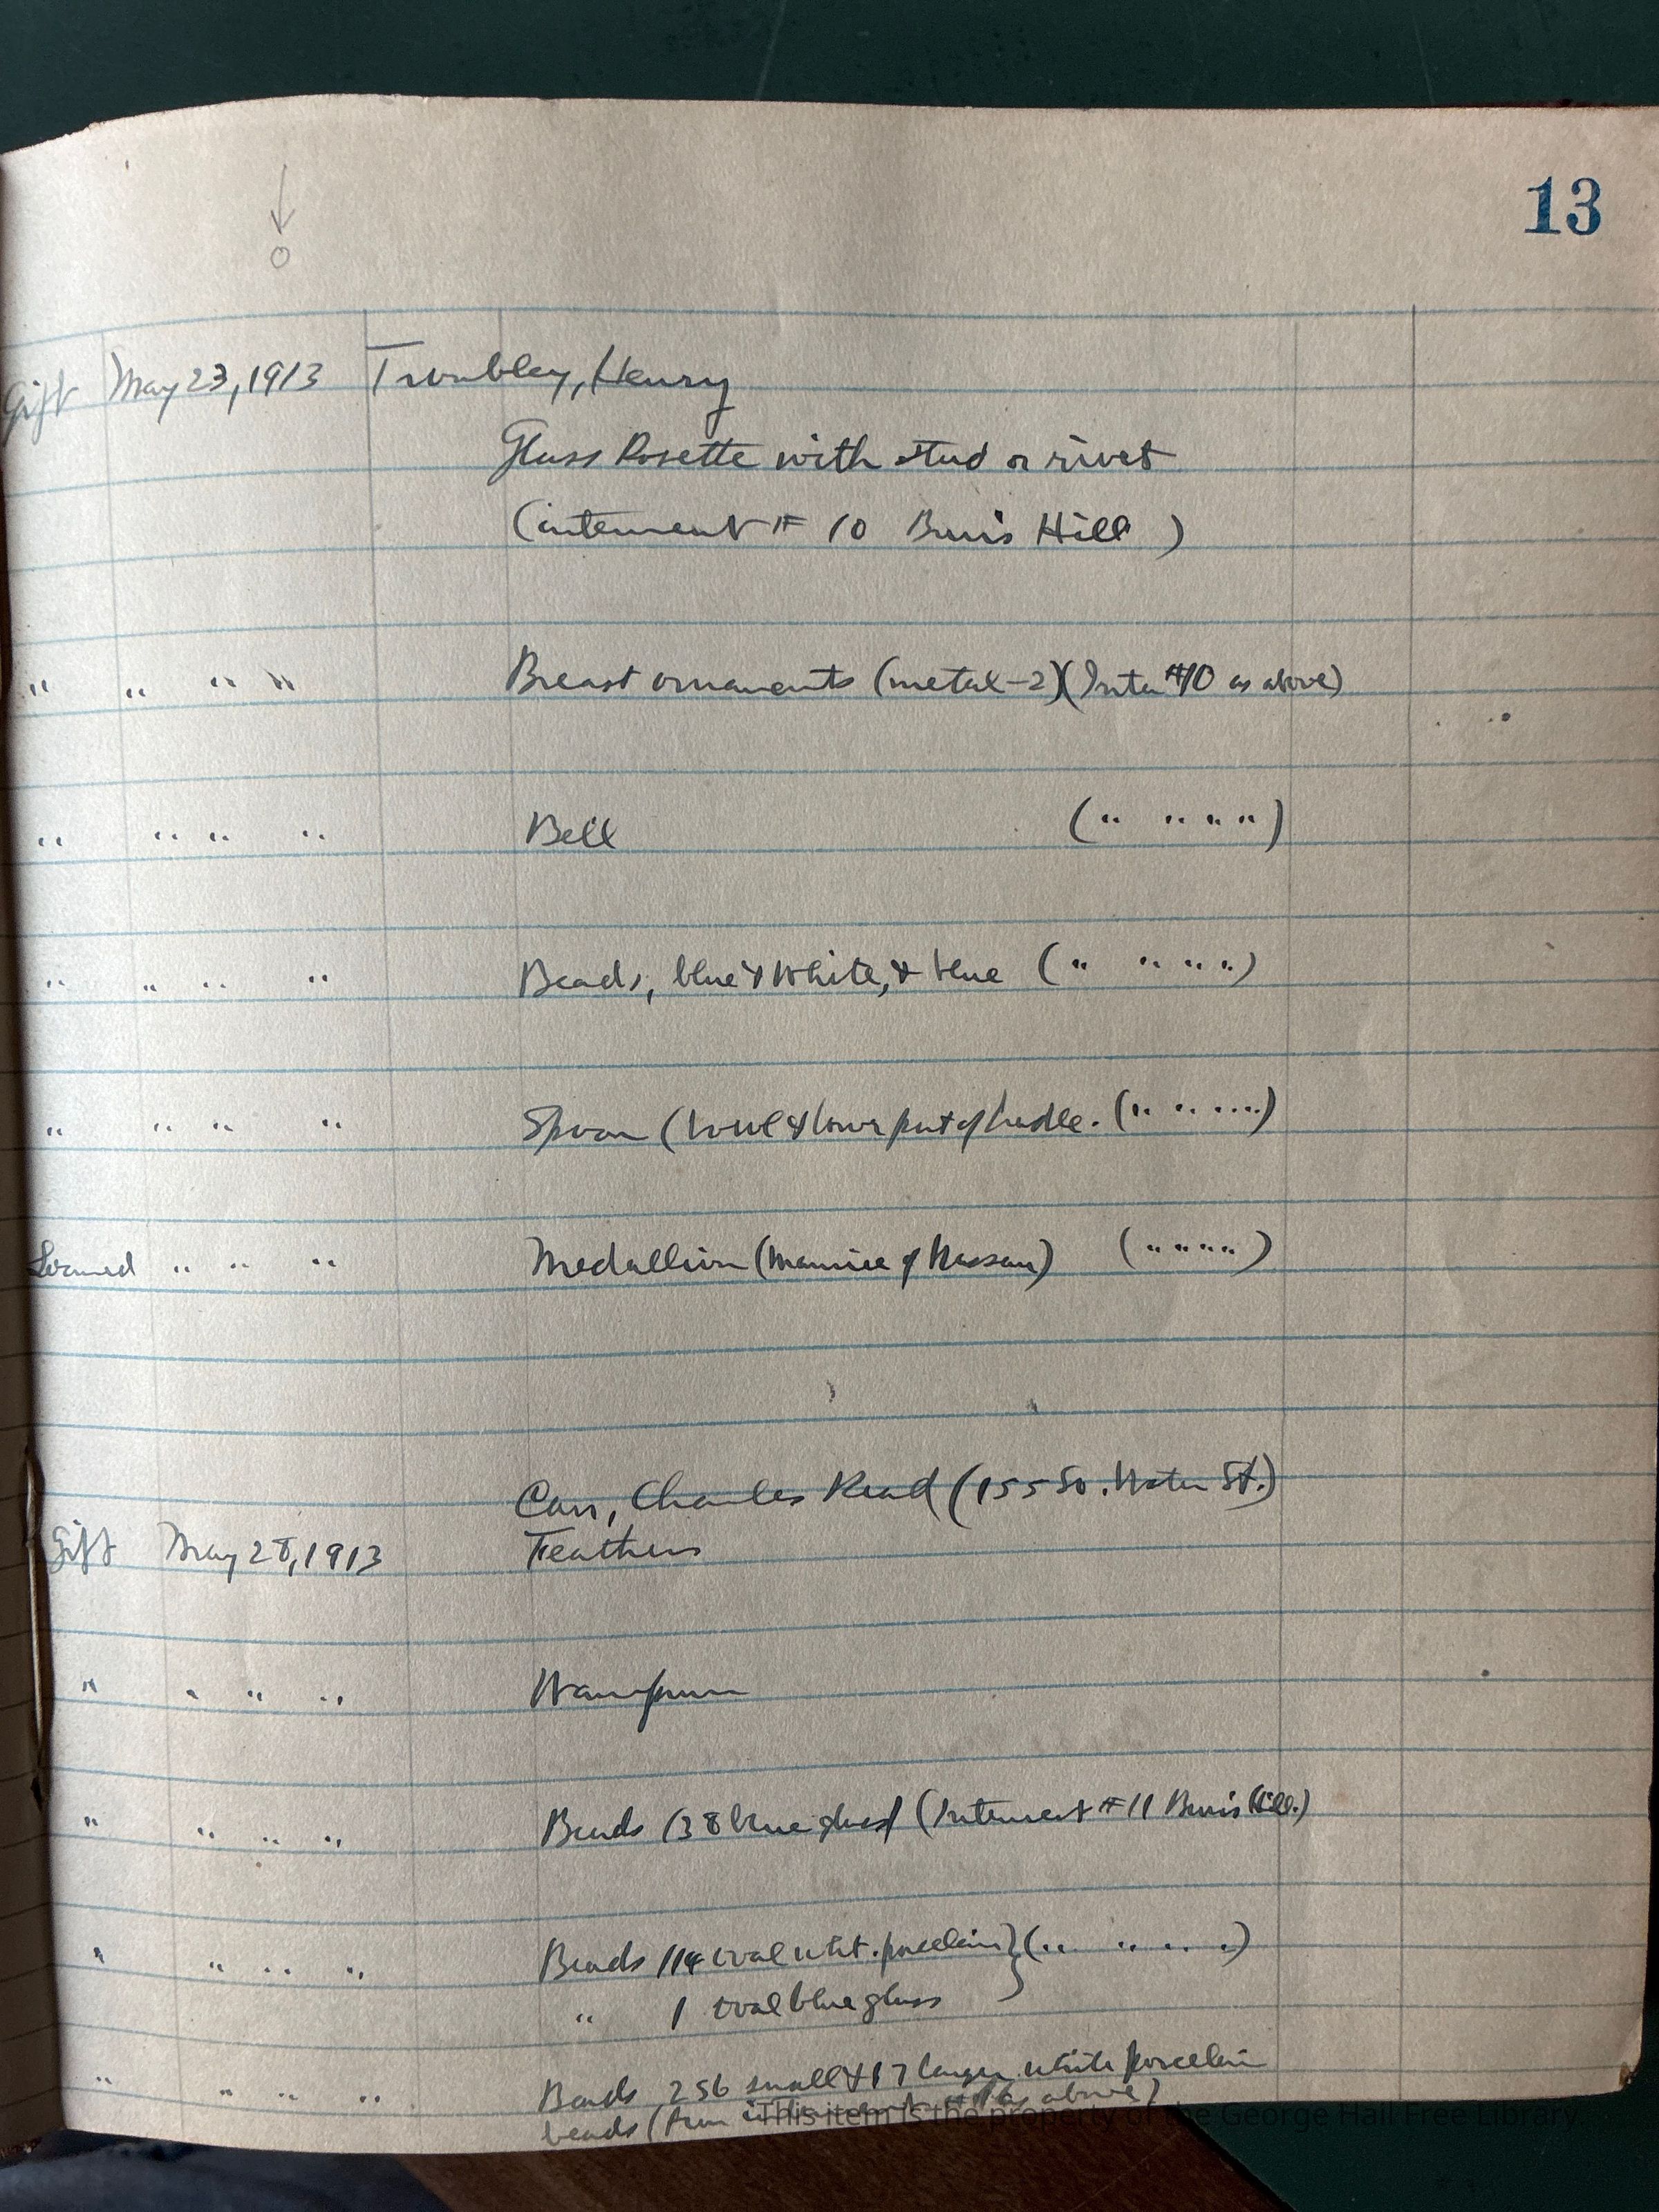 13
Gift May 23, 1913 Trombley, Henry
Glass Rosette with stud or rivet
(interment # 10 Burr's Hill )
" " " " Breast ornaments (metal-2) (Inter #10 as above)
" " " " Bell (" " " ")
" " " " Beads, blue & white, & blue (" " " ")
" " " " Spoon (bowl & lower part of handle. (" " " " ")
Loaned " " " Medallion (Maurice of Nassau) (" " " ")
Carr, Charles Read (155 So. Water St.)
Gift May 28, 1913 Feathers
" " " " Wampum
" " " " Beads 138 blue glass (Interment # 11 Burr's Hill.)
" " " " Beads 114 oval wht. porcelain } (" " " ")
" 1 oval blue glass
" " " " Beads 256 small & 17 larger white porcelain
beads (from as above)
This item is the property of the George Hail Free Library